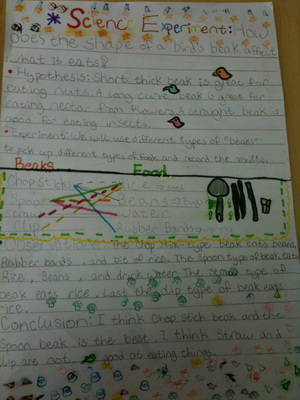 * Science Experiment: How
Does the shape of a bird's beak affect
what it eats?
• Hypothesis: Short thick beak is great for
eating nuts. A long curve beak is great for
eating nectar from flowers. A straight beak is
good for eating insects.
• Experiment: We will use different types of "beaks"
to pick up different types of foods and record the results.
Beaks Food
Chop Stick Rice → seed
Spoon Beans →
Straw Water
Clip Rubber Bands
Observation: The chop stick type beak eats beans,
Rubber bands, and bit of rice. The Spoon type of beak eats
Rice, Beans, and drink water. The Straw type of
beak eats rice. Last the clip types of beak eats
rice.
Conclusion: I think Chop stick beak and the
Spoon beak is the best. I think Straw and
clip are not good at eating things.